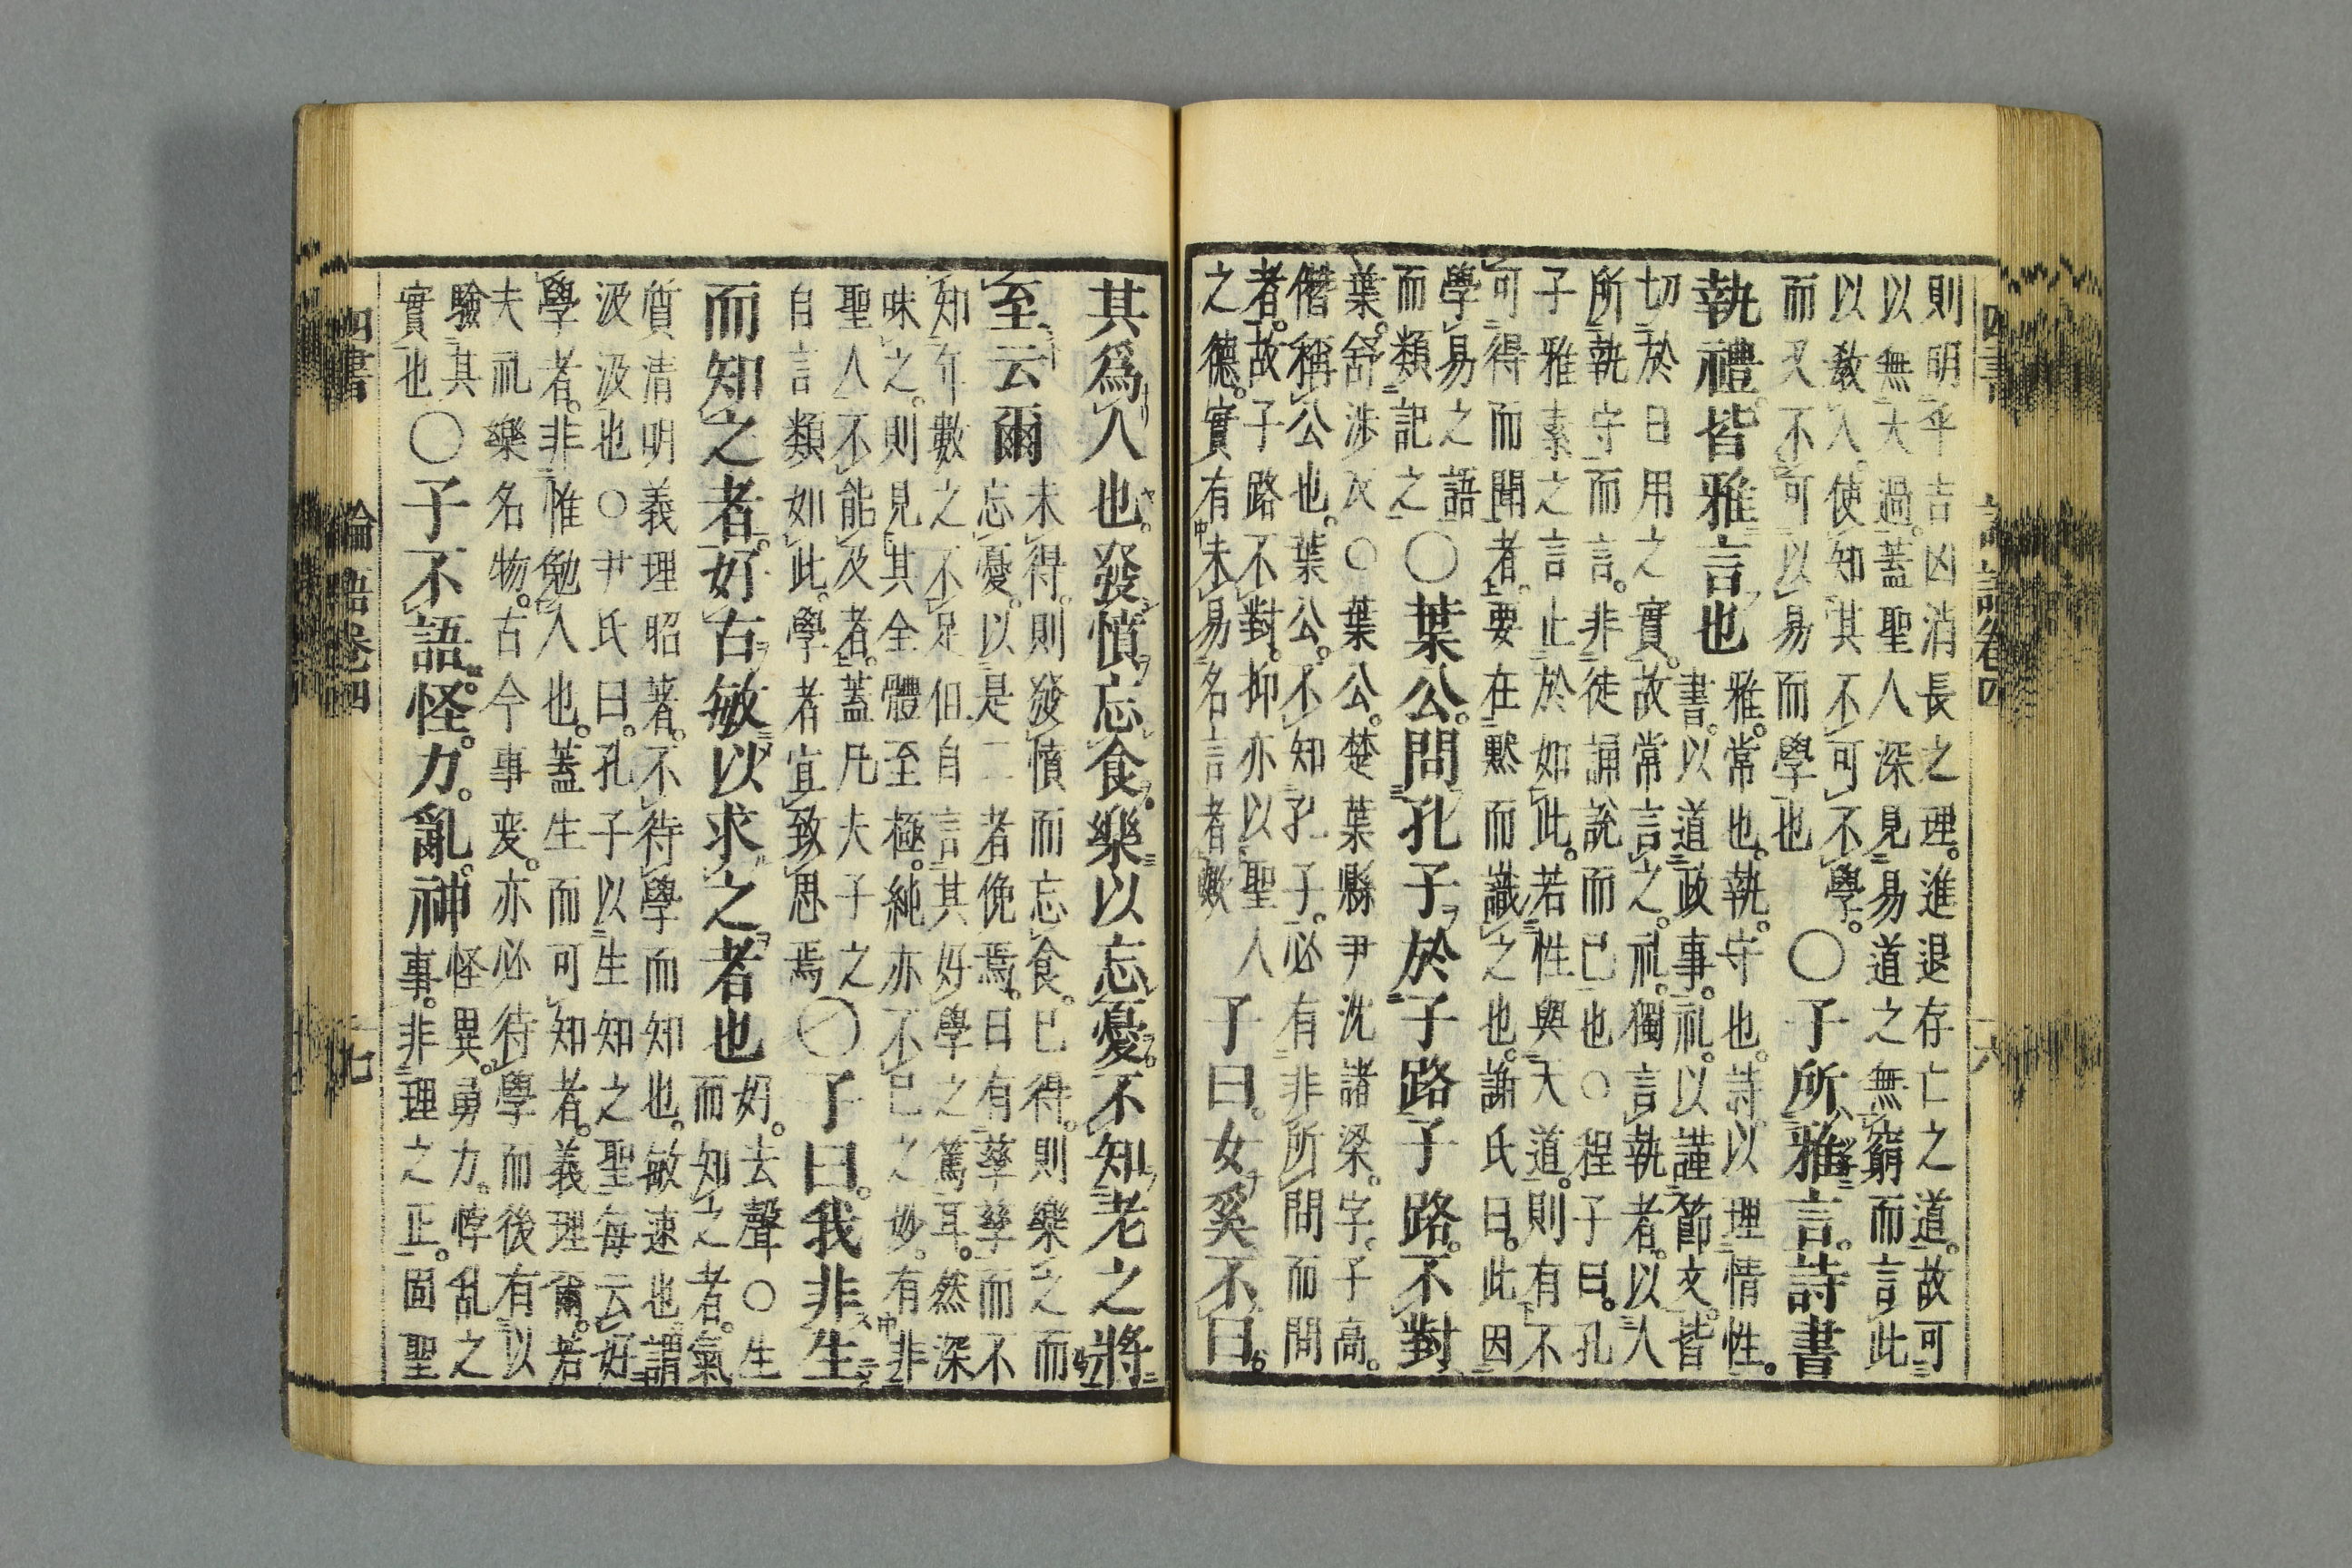 四書 論語卷四 十六
則明乎吉凶消長之理。進退存亡之道。故可
以無大過。蓋聖人深見易道之無窮而言此
以教人。使知其不可不學。
而又不可以易而學也
○子所雅言。詩書
執禮皆雅言也
雅。常也。執。守也。詩。以理情性。
書。以道政事。礼。以謹節文。皆
切於日用之實。故常言之。礼獨言執者。以人
所執守而言。非徒誦說而已也○程子曰。孔
子雅素之言止於如此。若性與天道。則有不
可得而聞者。要在默而識之也。謝氏曰。此因
學易之語
而類記之
○葉公。問孔子於子路子路。不對
葉。舒涉反○葉公。楚葉縣尹沈諸梁。字。子高。
僭稱公也。葉公。不知孔子。必有非所問而問
者。故子路不對。抑亦以聖人
之德。實有未易名言者歟
子曰。女奚不曰。
其爲人也。發憤忘食。樂以忘憂。不知老之將
至云爾
未得。則發憤而忘食。已得。則樂之而
忘憂。以是二者俛焉。日有孳孳而不
知年數之不足。但自言其好學之篤耳。然深
味之。則見其全體至極。純亦不已之妙。有非
聖人不能及者。蓋凡夫子之
自言類如此。學者宜致思焉
○子曰。我非生
而知之者。好古敏以求之者也
好。去聲○生
而知之者。氣
質清明義理昭著。不待學而知也。敏速也。謂
汲汲也○尹氏曰。孔子以生知之聖每云好
學者。非惟勉人也。蓋生而可知者。義理爾。若
夫礼樂名物。古今事変。亦必待學而後有以
驗其
實也
○子不語。怪。力。亂。神
怪異。勇力。悖乱之
事。非理之正。固聖
四書 論語卷四 十七